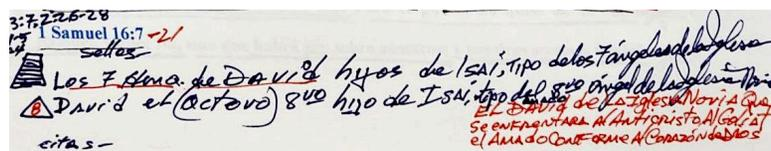 3:7,22,26-28
1 Samuel 16:7-21
sellos
Los 7 de David hijos de ISAí, TIPO de los 7 ángeles de la Iglesia
8 David el (octavo) 8vo hijo de ISAí, tipo del 8vo ángel de la Iglesia Novia
EL DAVID de la Iglesia Novia Que
se enfrentara Al Anticristo Al Goliat
el AMADO CONFORME Al CORAZÓN de DIOS
citas-